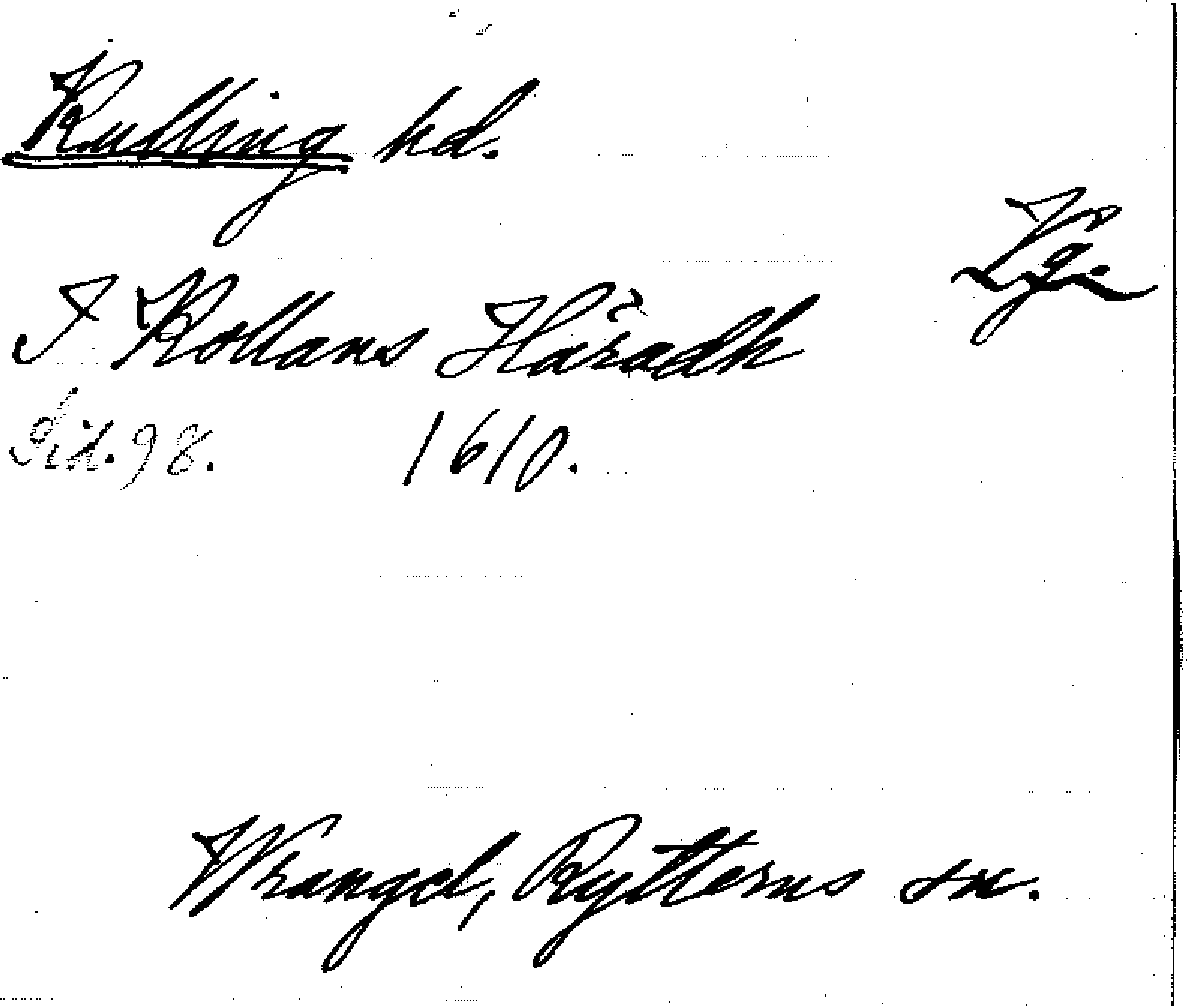 Kulling hd.
Vg.
I Kollans Häradh
Sid. 98. 1610.
Wrangel, Rytterns sn.